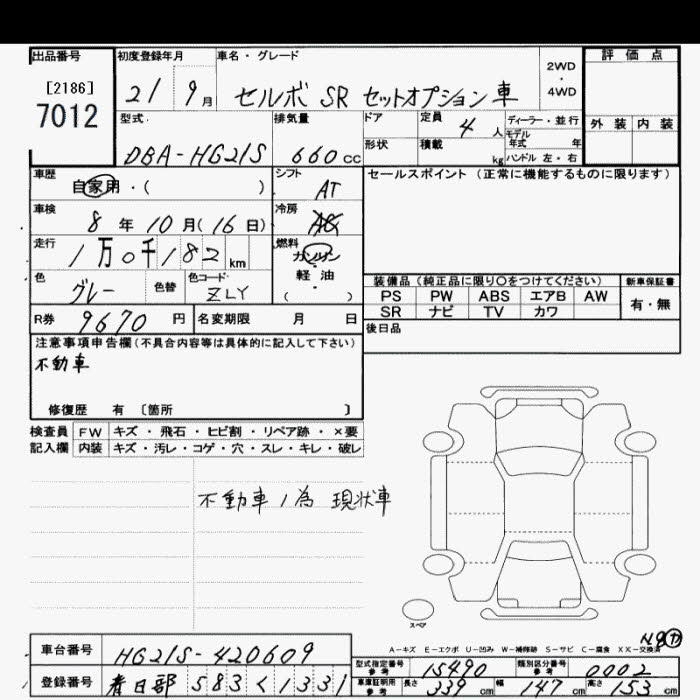 出品番号 初度登録年月 車名・グレード 2WD・4WD 評価点
[2186]
7012 21 9月 セルボ SR セットオプション車
型式 排気量 ドア 定員 4人 ディーラー・並行 外装 内装
モデル年式 年
DBA-HG21S 660cc 形状 積載 kg ハンドル 左・右
車歴 自家用・( ) シフト AT セールスポイント(正常に機能するものに限ります)
車検 8年10月(16日) 冷房
走行 1万0千182km 燃料 ガソリン・軽油・( )
色 グレー 色替 色コード ZLY
装備品(純正品に限り〇をつけてください) 新車保証書
PS PW ABS エアB AW 有・無
SR ナビ TV カワ
R券 9670円 名変期限 月 日 後日品
注意事項申告欄(不具合内容等は具体的に記入して下さい)
不動車
修復歴 有 〔箇所 〕
検査員 FW キズ・飛石・ヒビ割・リペア跡・×要
記入欄 内装 キズ・汚レ・コゲ・穴・スレ・キレ・破レ
不動車ノ為 現状車
スペア
A-キズ E-エクボ U-凹み W-補修跡 S-サビ C-腐食 XX-交換済
車台番号 HG21S-420609 型式指定番号 参考 15490 類別区分番号 参考 0002
登録番号 春日部 583く1331 車庫証明用 参考 長さ 339cm 幅 147cm 高さ 153cm